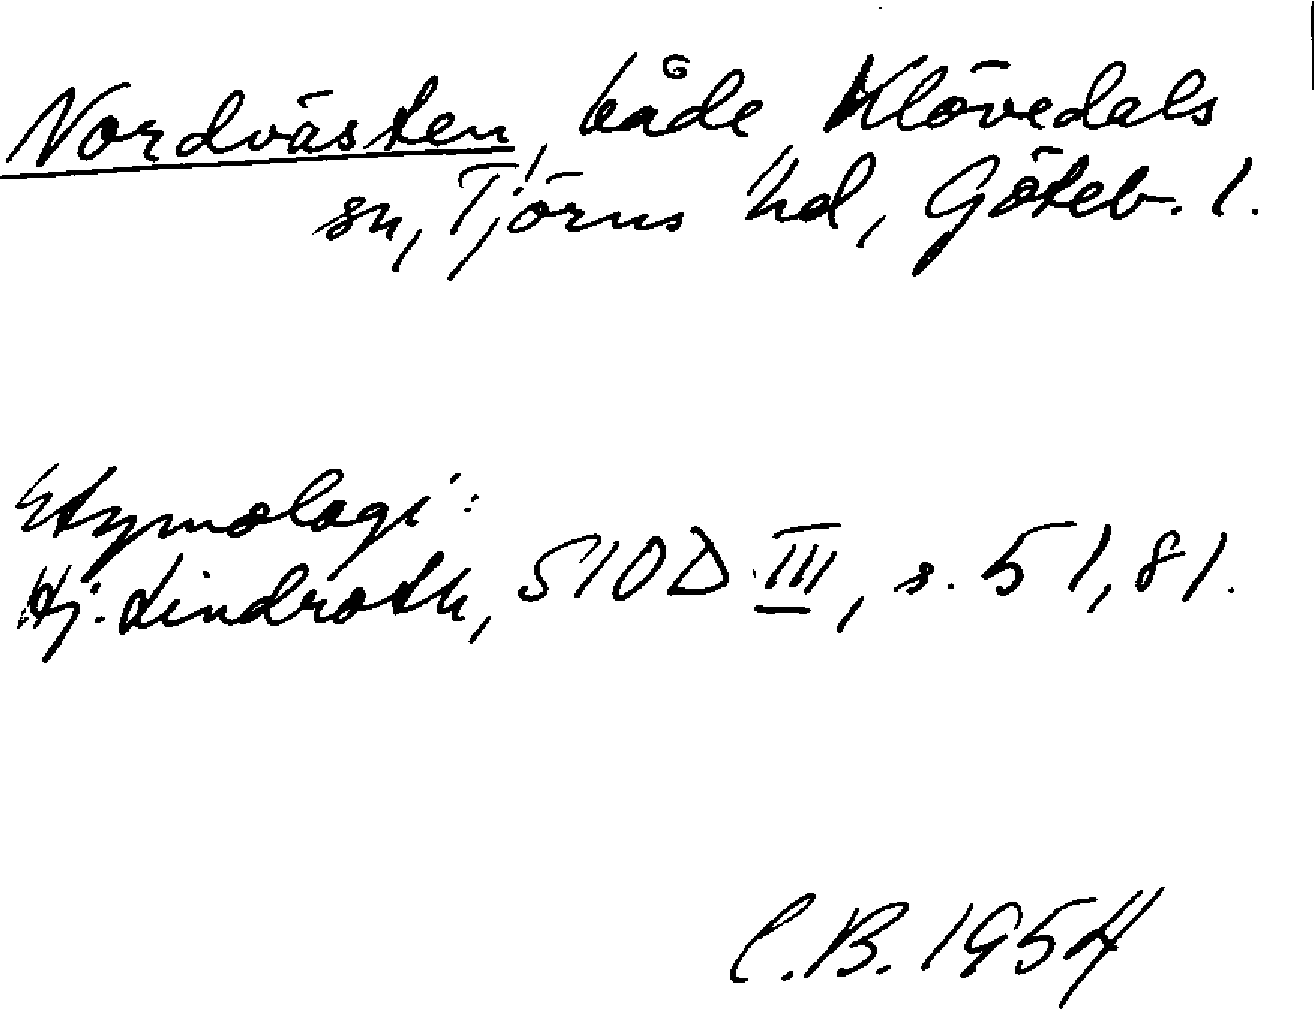 Nordvästen, både Klövedals
sn, Tjörns hd, Göteb. l.
Etymologi:
Hj. Lindroth, SIOD III, s. 51, 81.
C.B. 1954